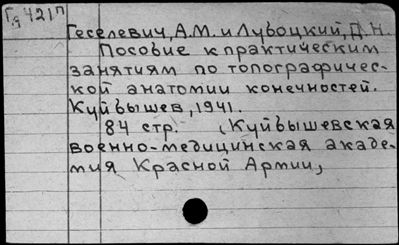 Гя421п
Геселевич, А.М. и Лубоцкий, Д.Н.
Пособие к практическим
занятиям по топографичес-
кой анатомии конечностей.
Куйбышев, 1941.
84 стр. (Куйбышевская
военно-медицинская акаде-
мия Красной Армии,